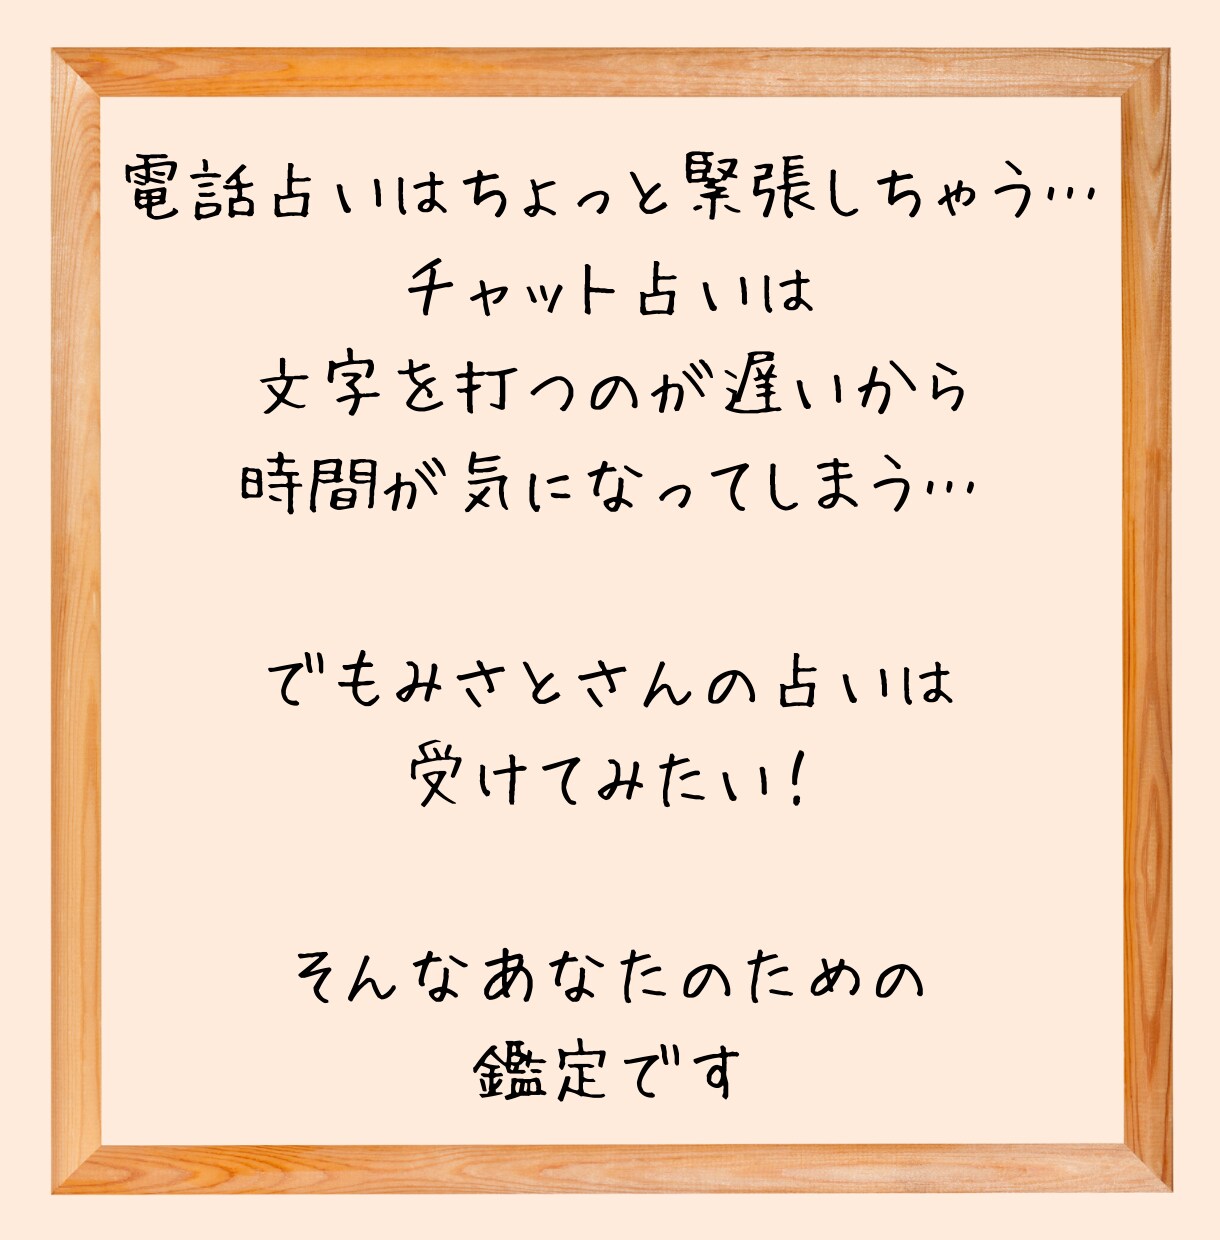 電話占いはちょっと緊張しちゃう…
チャット占いは
文字を打つのが遅いから
時間が気になってしまう…
でもみさとさんの占いは
受けてみたい！
そんなあなたのための
鑑定です